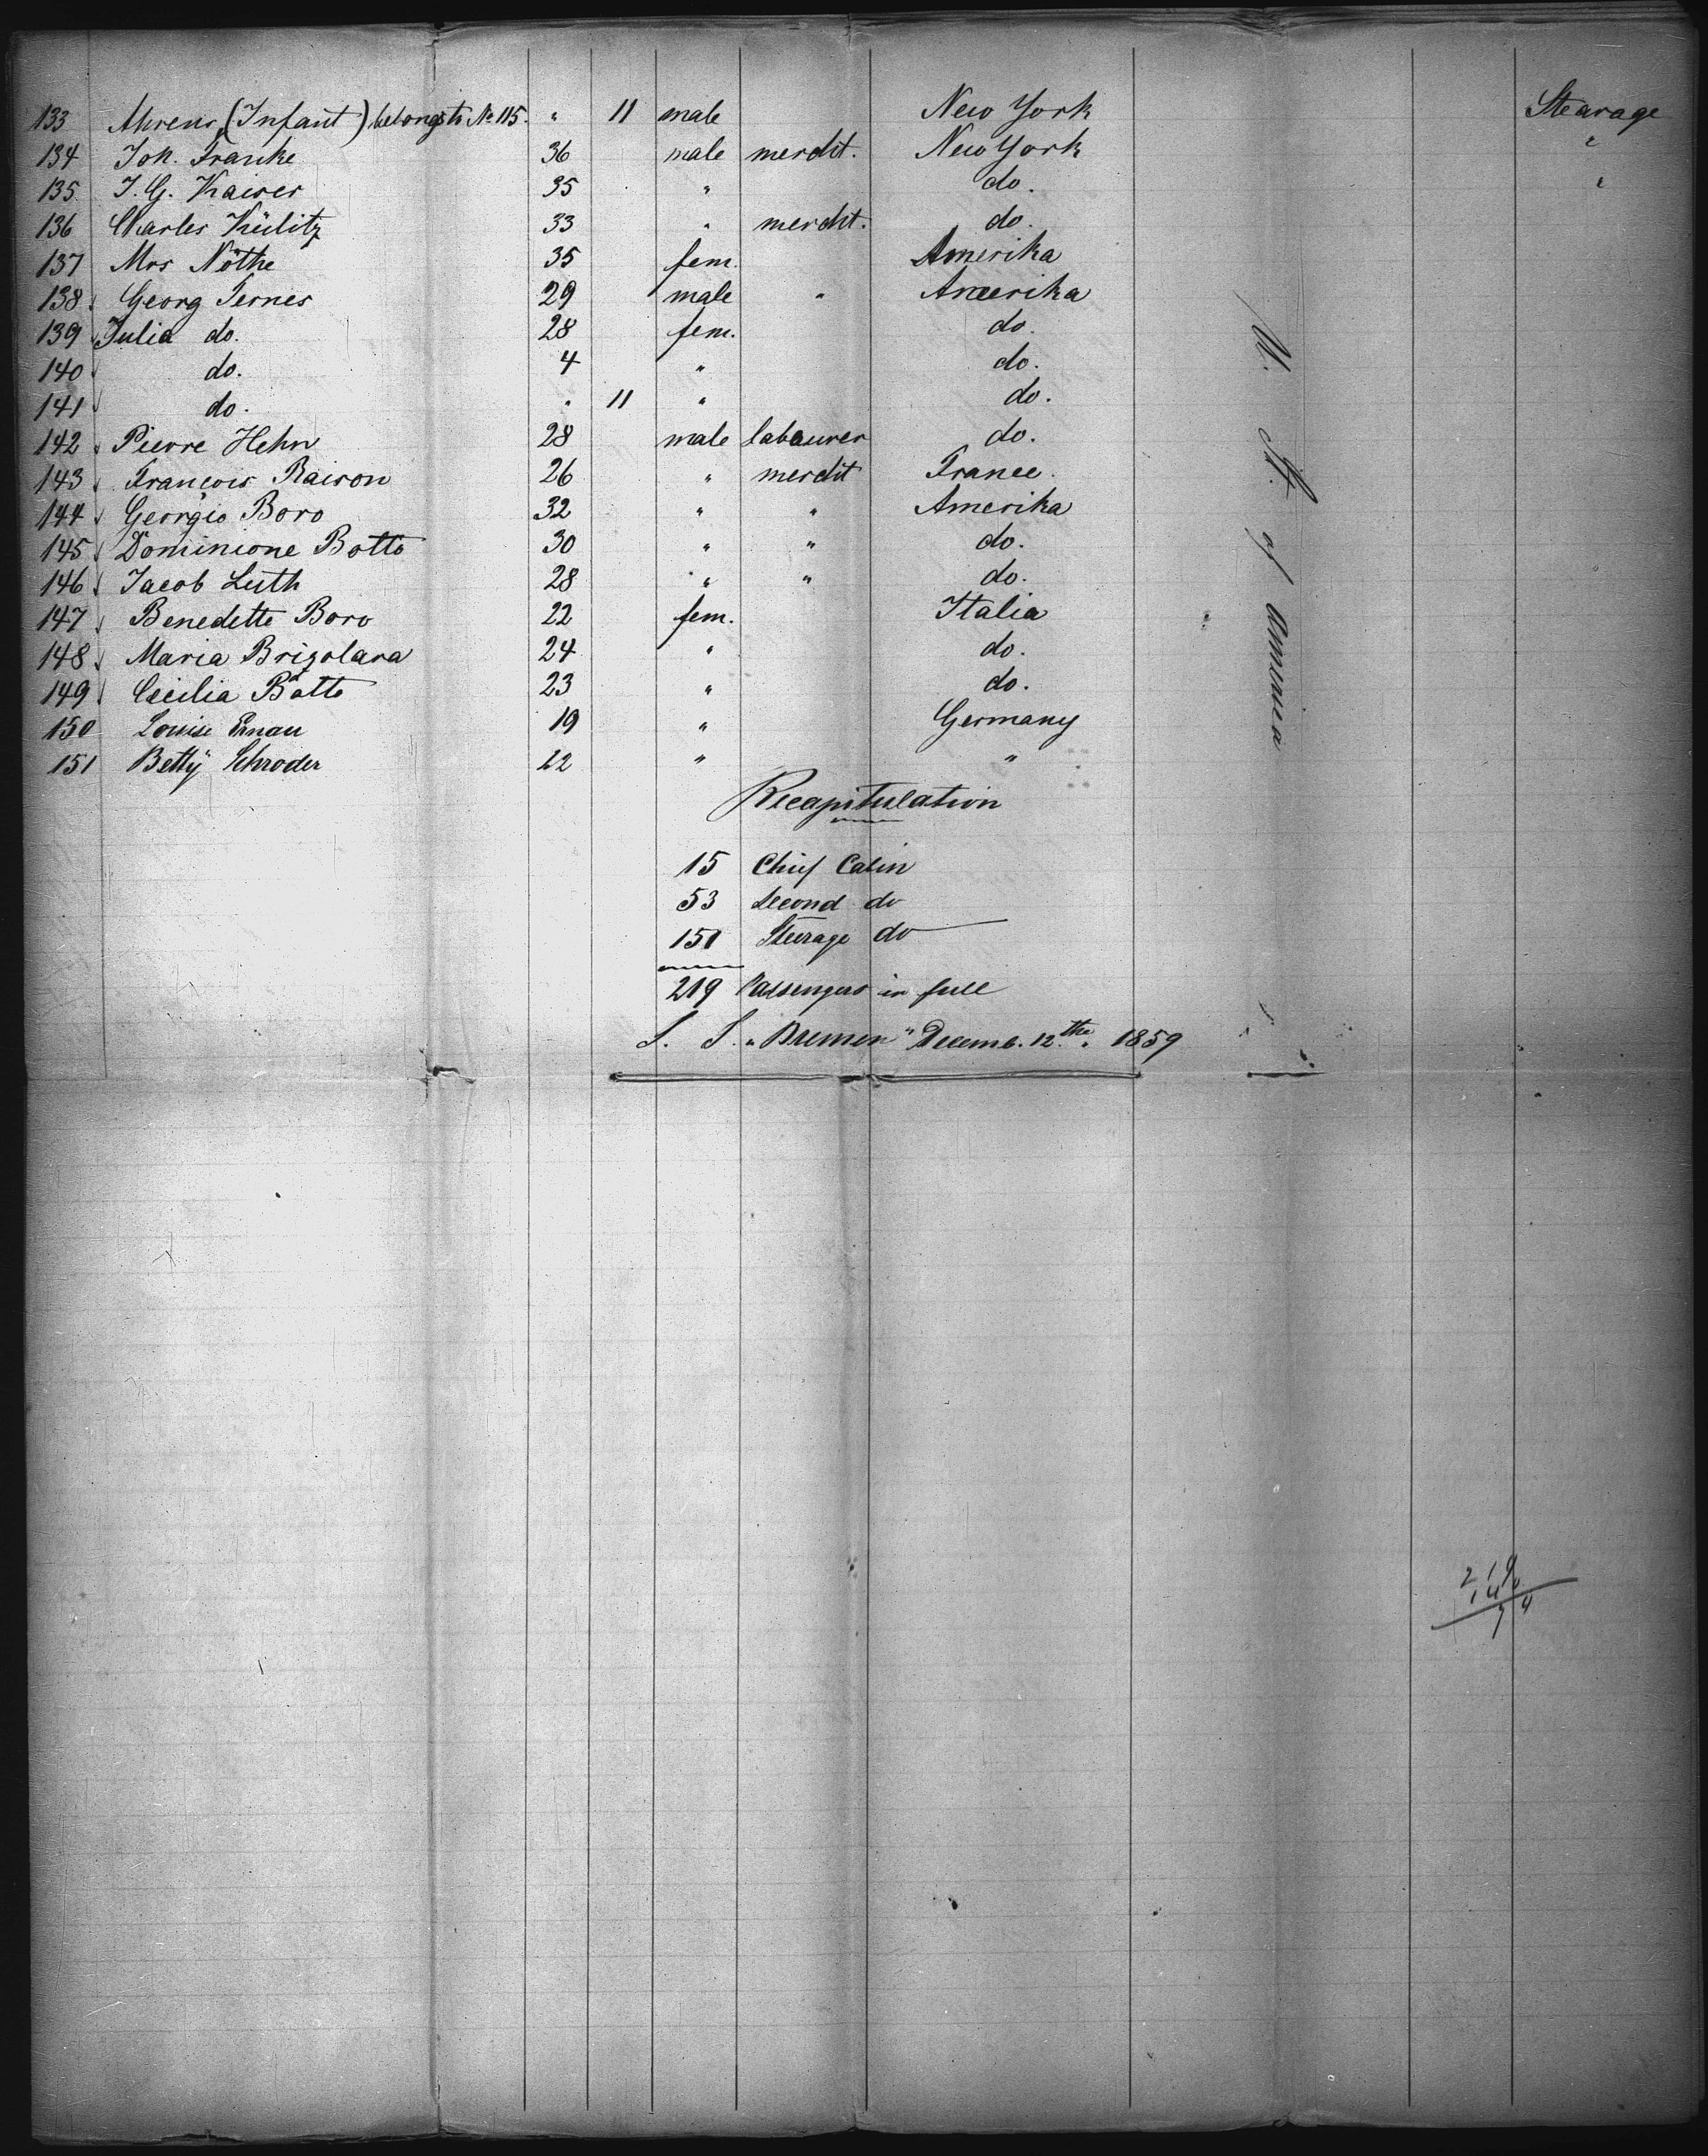 133 Ahrens (Infant) belongs to No 115. " 11 male New York Stearage
134 Joh. Franke 36 male merdit. New York "
135 J. G. Kaiser 35 " do. "
136 Charles Külitz 33 " merdit. do.
137 Mrs Nöthe 35 fem. Amerika
138 Georg Fernes 29 male " Amerika
139 Julia do. 28 fem. do.
140 do. 4 " do.
141 do. " 11 " do.
142 Pierre Hehn 28 male labaurer do.
143 François Raison 26 " merdit France.
144 Georgio Boro 32 " " Amerika
145 Dominione Botto 30 " " do.
146 Jacob Luth 28 " " do.
147 Benedette Boro 22 fem. Italia
148 Maria Brizolara 24 " do.
149 Cecilia Botto 23 " do.
150 Louise Emau 19 " Germany
151 Betty Schroder 22 " "
U. St. of America
Recapitulation
15 Chief Cabin
53 Second do
151 Steerage do
219 Passengers in full
S. S. "Bremen" Decemb. 12the. 1859
219